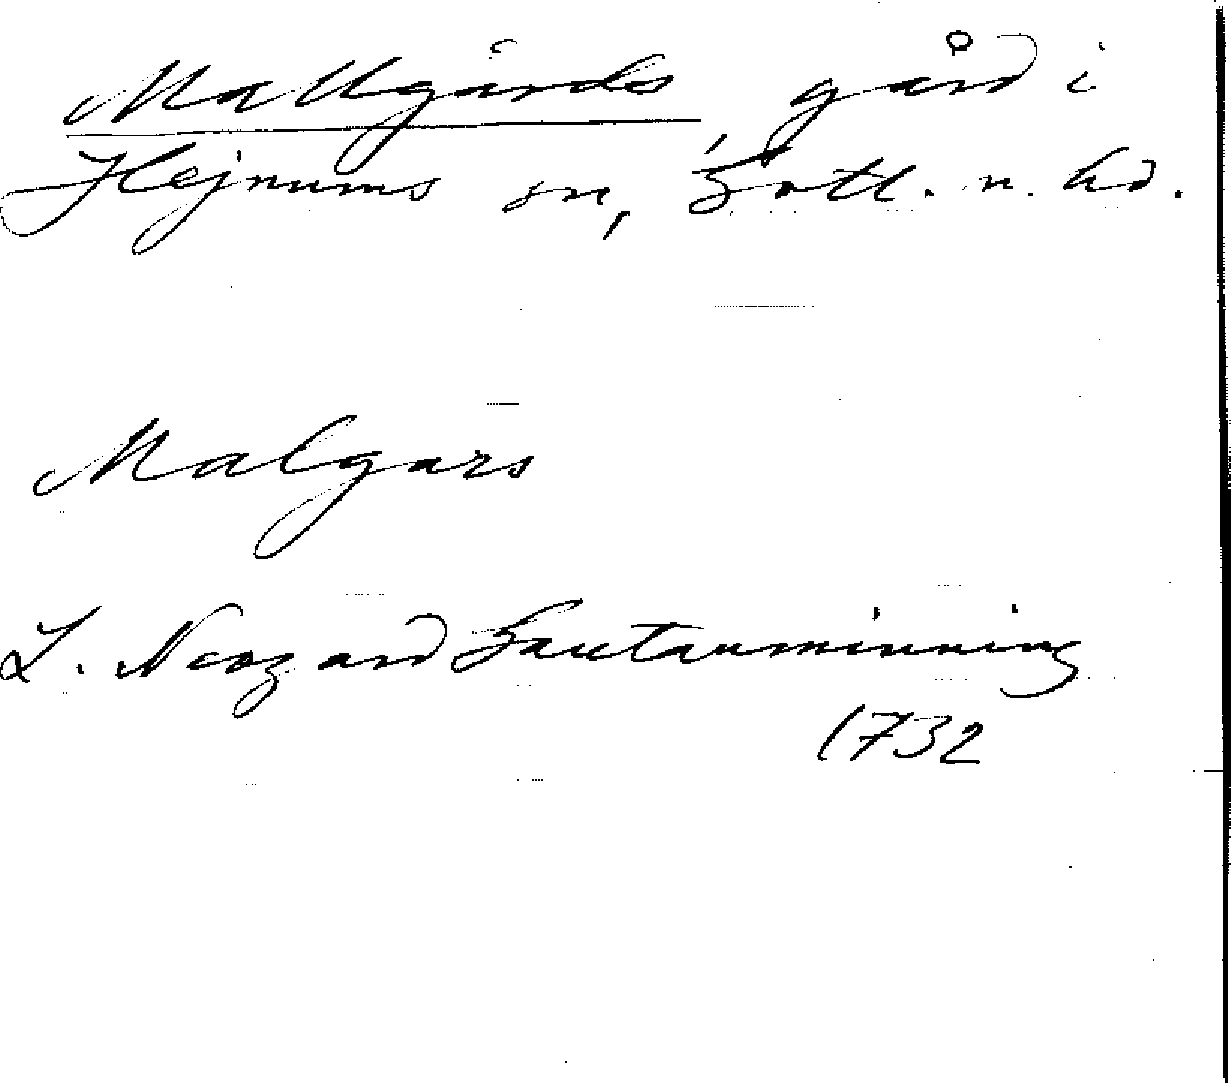 Mallgårds, gård i
Hejnums sn, Gotl. n. hd.
Malgars
L. Neogard Gautauminning
1732